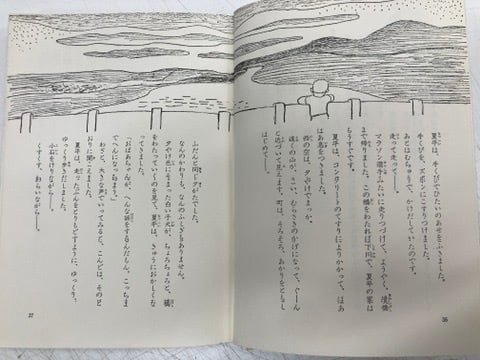 夏平は、手くびでひたいのあせをふきました。
手くびを、ズボンにこすりつけました。
あとはむちゅうで、かけだしていたのです。
走って走って——。
マラソン選手みたいに走りつづけて、ようやく、境橋
まで帰りました。この橋をわたれば下川で、夏平の家は
もうすぐです。
夏平は、コンクリートのてすりによりかかって、はあ
はあ息をつきました。
西の空は、夕やけでまっか。
遠くの山が、こい、むらさきのかげになって、ぐーん
と近づいて見えます。町は、そろそろ、あかりをともし
はじめて——。
36
ふだんと同じ夕がたでした。
なんのかわりも、なんのふしぎもありません。
夕やけ色にそまった白い子犬が、ちょろちょろと、橋
をわたって行くのを見て、夏平は、きゅうにおかしくな
ってきました。
「おばあちゃんが、へんな話をするんだもん。こっちま
でへんになっちまう」
わざと、大きな声でいってみると、こんどは、そのと
おりに聞こえました。
夏平は、走ったぶんをとりもどすように、ゆっくり、
ゆっくり歩きだしました。
小石をけりながら——。
くすくす、わらいながら——。
37